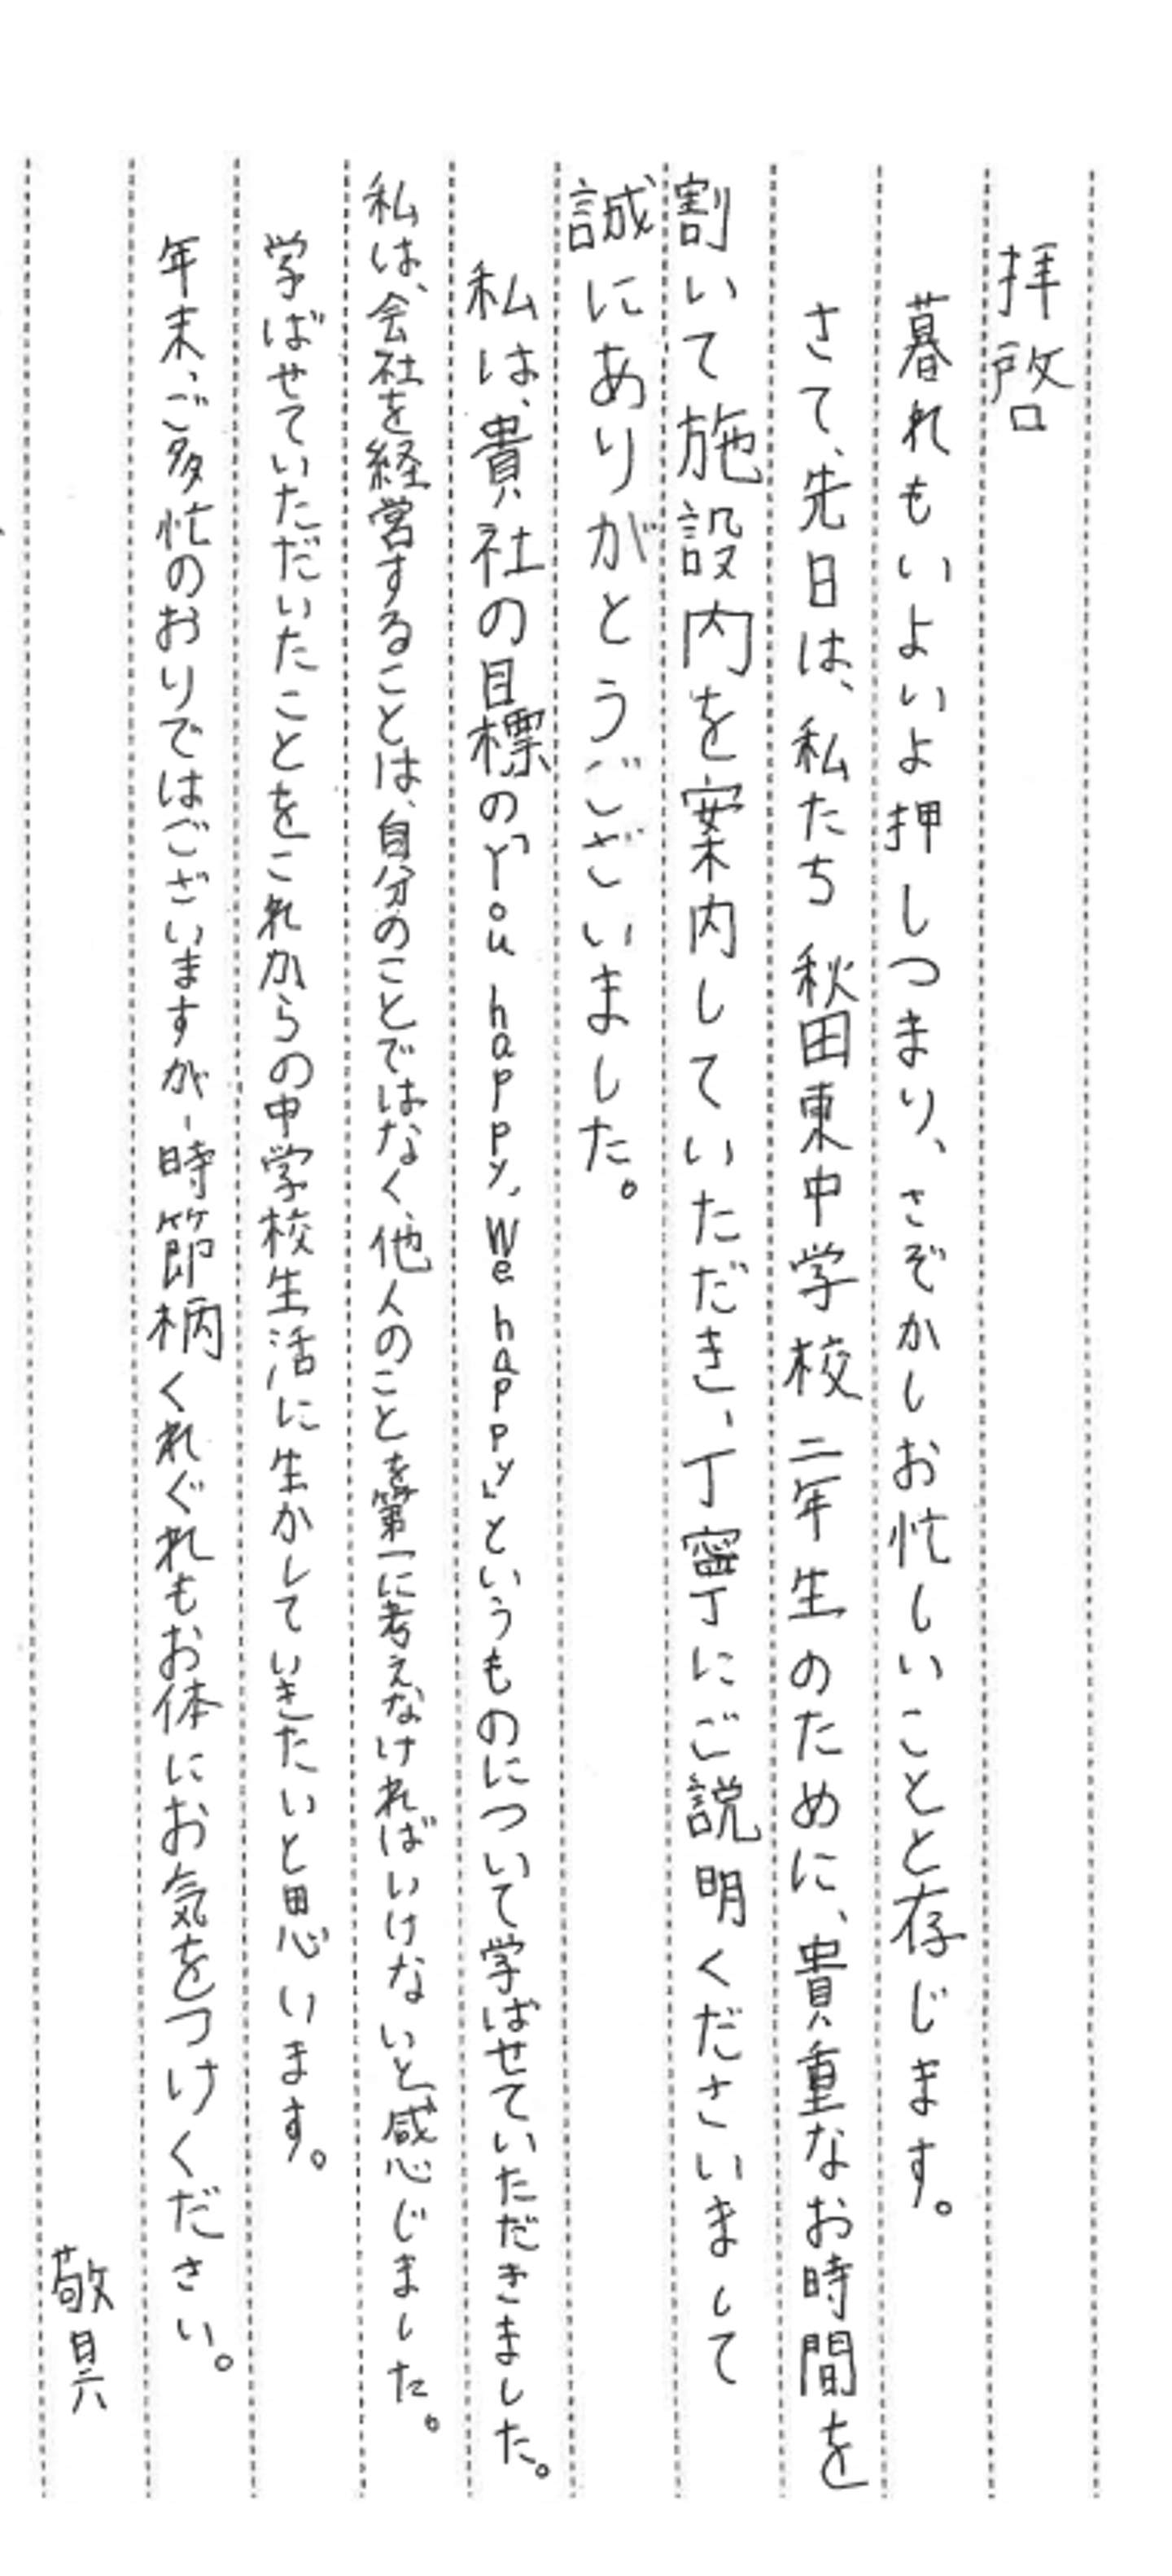 拝啓
暮れもいよいよ押しつまり、さぞかしお忙しいことと存じます。
さて、先日は、私たち秋田東中学校二年生のために、貴重なお時間を
割いて施設内を案内していただき、丁寧にご説明くださいまして
誠にありがとうございました。
私は、貴社の目標の「You happy, We happy」というものについて学ばせていただきました。
私は、会社を経営することは、自分のことではなく、他人のことを第一に考えなければいけないと感じました。
学ばせていただいたことをこれからの中学校生活に生かしていきたいと思います。
年末、ご多忙のおりではございますが、時節柄くれぐれもお体にお気をつけください。
敬具